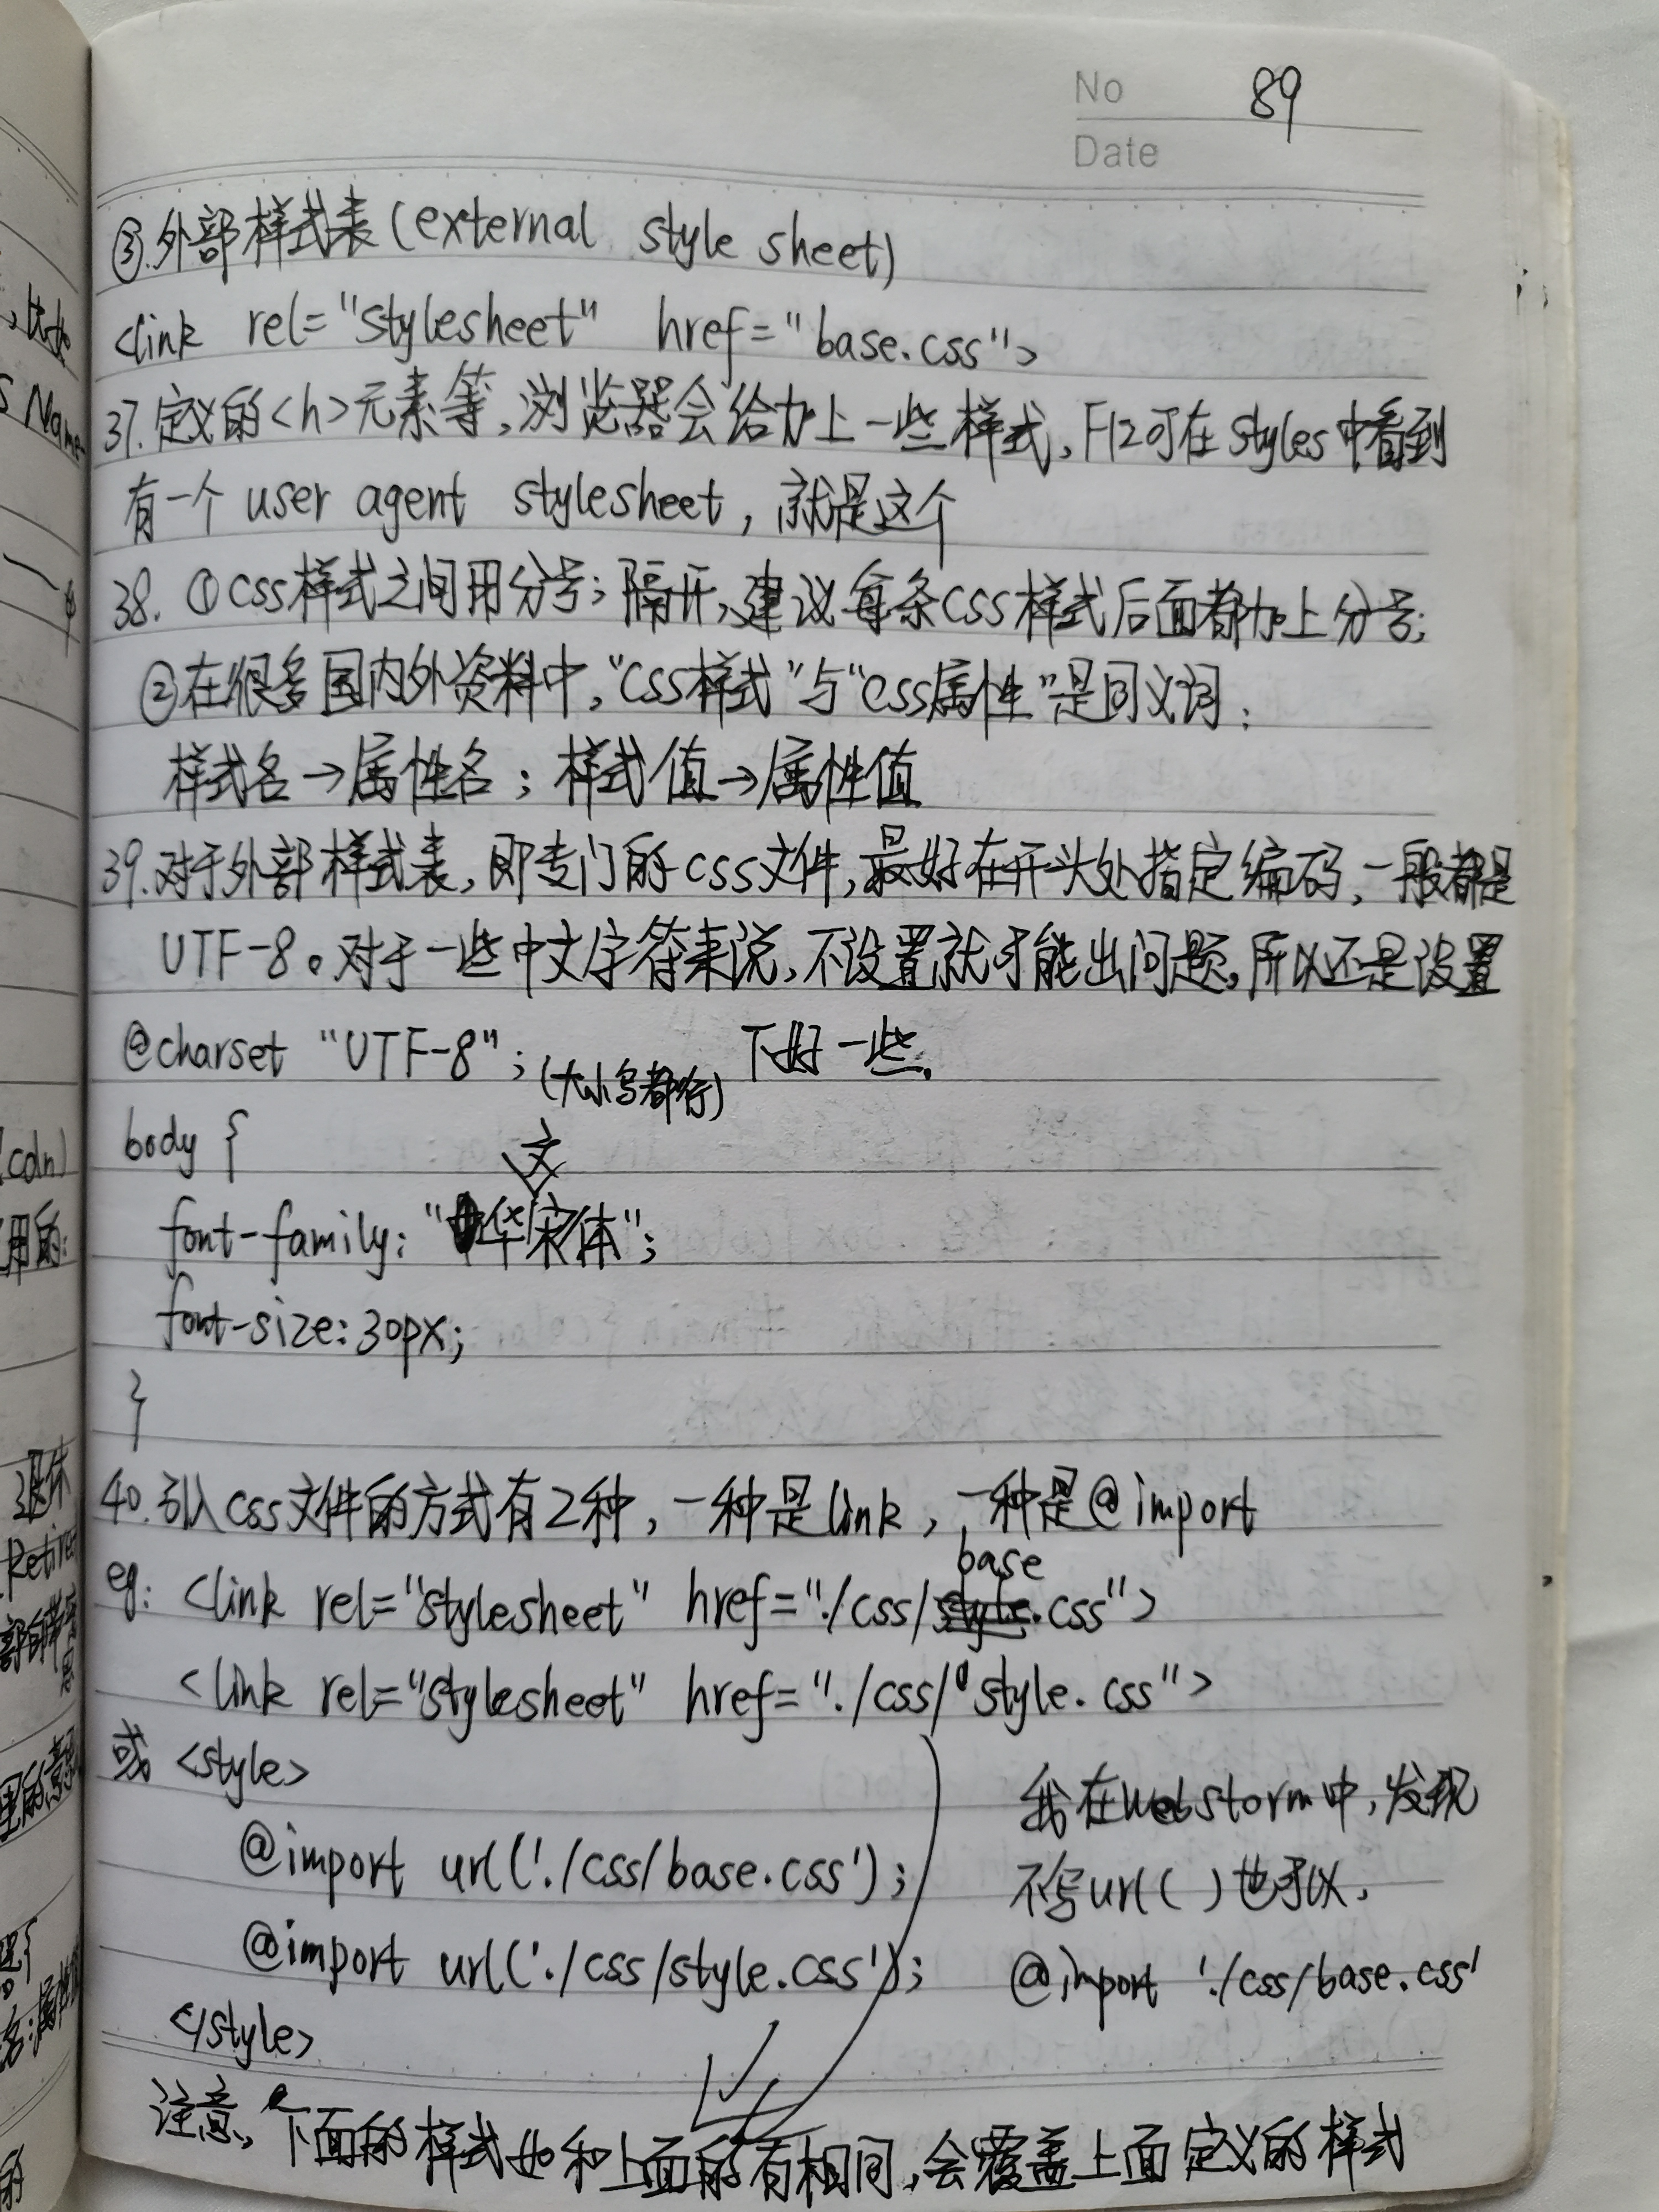 No 89
Date
③.外部样式表(external style sheet)
<link rel="stylesheet" href="base.css">
37.定义的<h>元素等,浏览器会给加上一些样式,F12可在styles中看到
有一个user agent stylesheet,就是这个
38. ①css样式之间用分号;隔开,建议每条css样式后面都加上分号;
②在很多国内外资料中,"css样式"与"css属性"是同义词;
样式名→属性名;样式值→属性值
39.对于外部样式表,即专门的css文件,最好在开头处指定编码,一般都是
UTF-8。对于一些中文字符来说,不设置就可能出问题,所以还是设置
下好一些.
@charset "UTF-8"; (大小写都行)
body {
font-family: "华文宋体";
font-size: 30px;
}
40.引入css文件的方式有2种,一种是link,一种是@import
eg: <link rel="stylesheet" href="./css/base.css">
<link rel="stylesheet" href="./css/style.css">
或 <style>
@import url('./css/base.css');
@import url('./css/style.css');
</style>
我在webstorm中,发现
不写url( )也可以,
@import './css/base.css'
注意,下面的样式如和上面的有相同,会覆盖上面定义的样式
比如
S Name
(cdn)
用的:
Retire